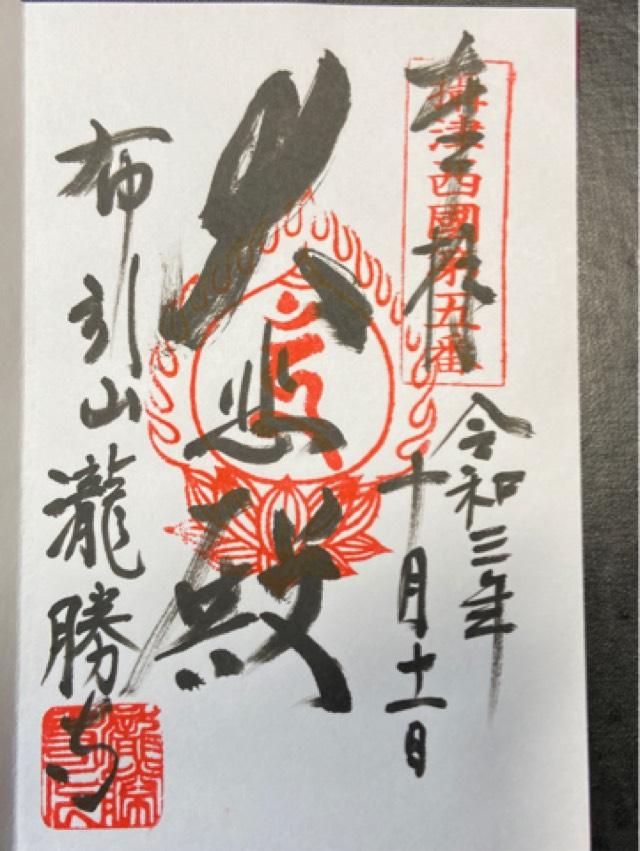 奉拝
摂津西國第五番
令和三年
十月十一日
大悲殿
布引山瀧勝寺